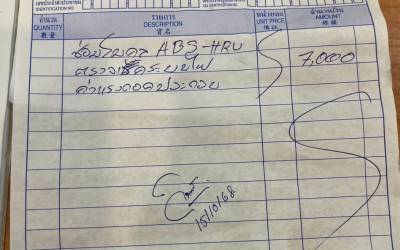 เลขประจำตัวประชาชน
IDENTIFICATION NO.
จำนวน รายการ หน่วยละ จำนวนเงิน
QUANTITY DESCRIPTION UNIT PRICE AMOUNT
數量 貨名 價格 總額
ซ่อมโมดูล ABS-HRU 7,000
ตรวจเช็คระบบไฟ
ค่าแรงถอดประกอบ
15/10/68